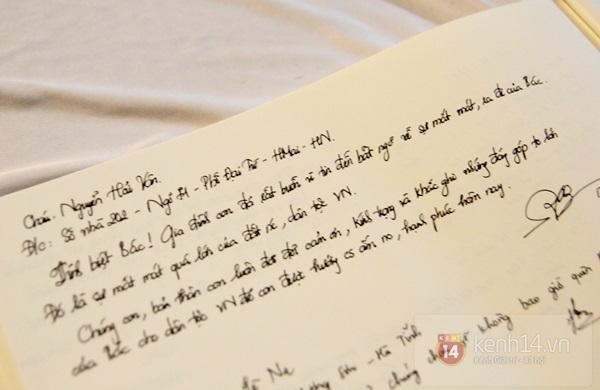 Cháu: Nguyễn Hải Vân.
Đ/c: Số nhà 202 - Ngõ 71 - Phố Đại Từ - HMai - HN.
Vĩnh biệt Bác! Gia đình con đã rất buồn vì tin đến bất ngờ về sự mất mát, ra đi của Bác.
Đó là sự mất mát quá lớn của đất nc, dân tộc VN.
Chúng con, bản thân con luôn đời đời cảm ơn, kính trọng và khắc ghi những đóng góp to lớn
của Bác cho dân tộc VN để con được hưởng cs ấm no, hạnh phúc hôm nay.
Hà Tĩnh
không bao giờ quên
kenh14.vn